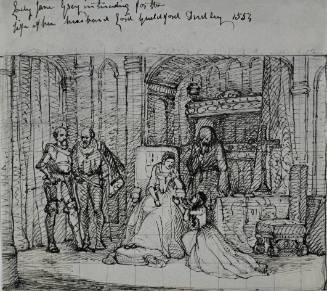 Lady Jane Grey interceding for the
life of her husband Lord Guildford Dudley 1553